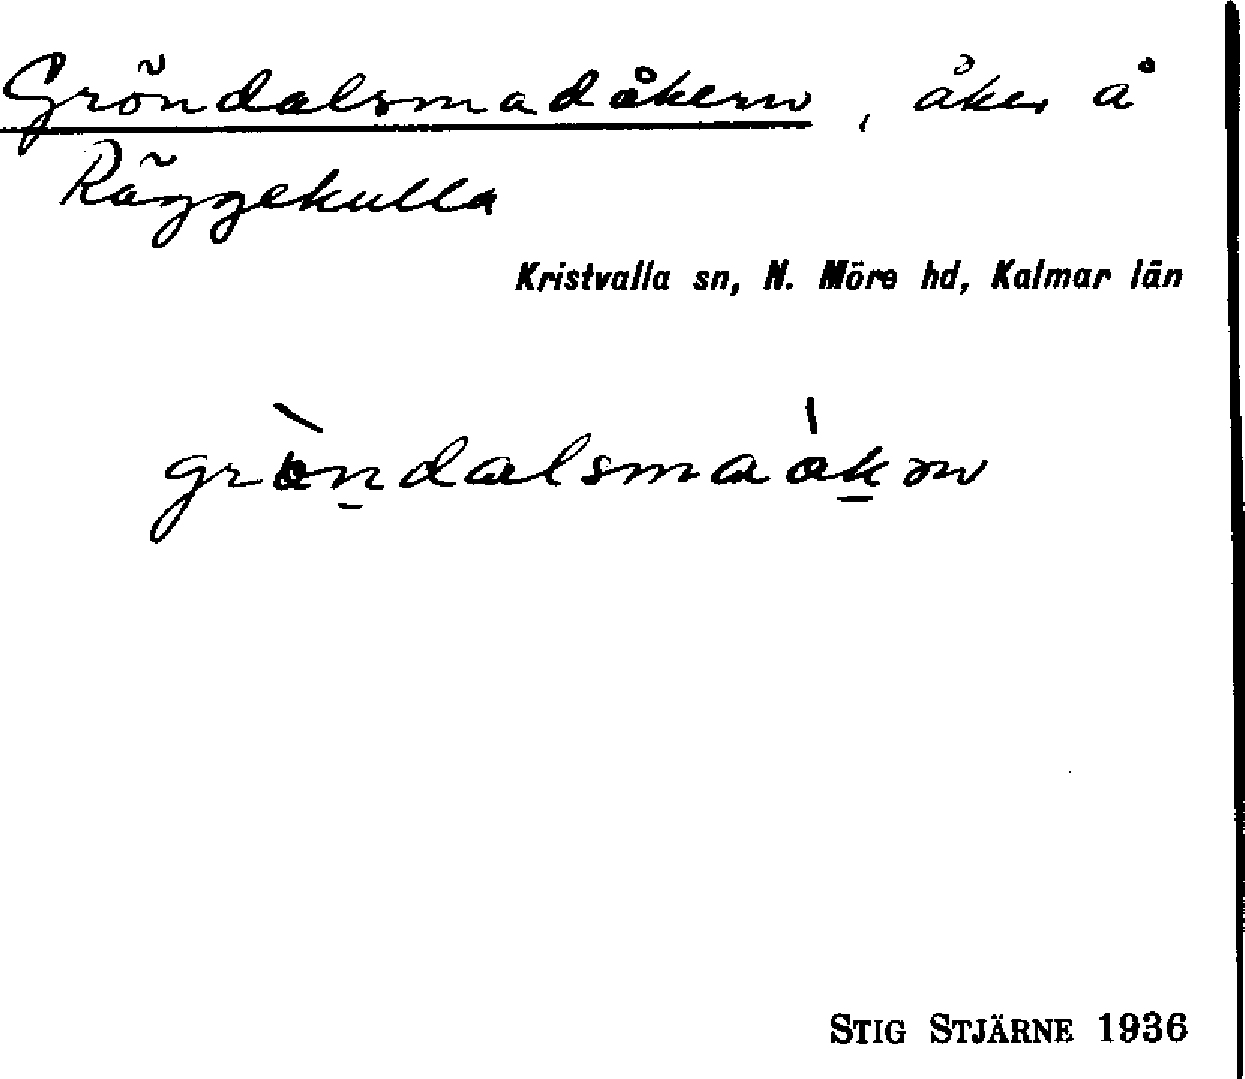 Gröndalsmadåkern, åker å
Räggekulla
Kristvalla sn, N. Möre hd, Kalmar län
grö̀ndalsmaåkən
STIG STJÄRNE 1936